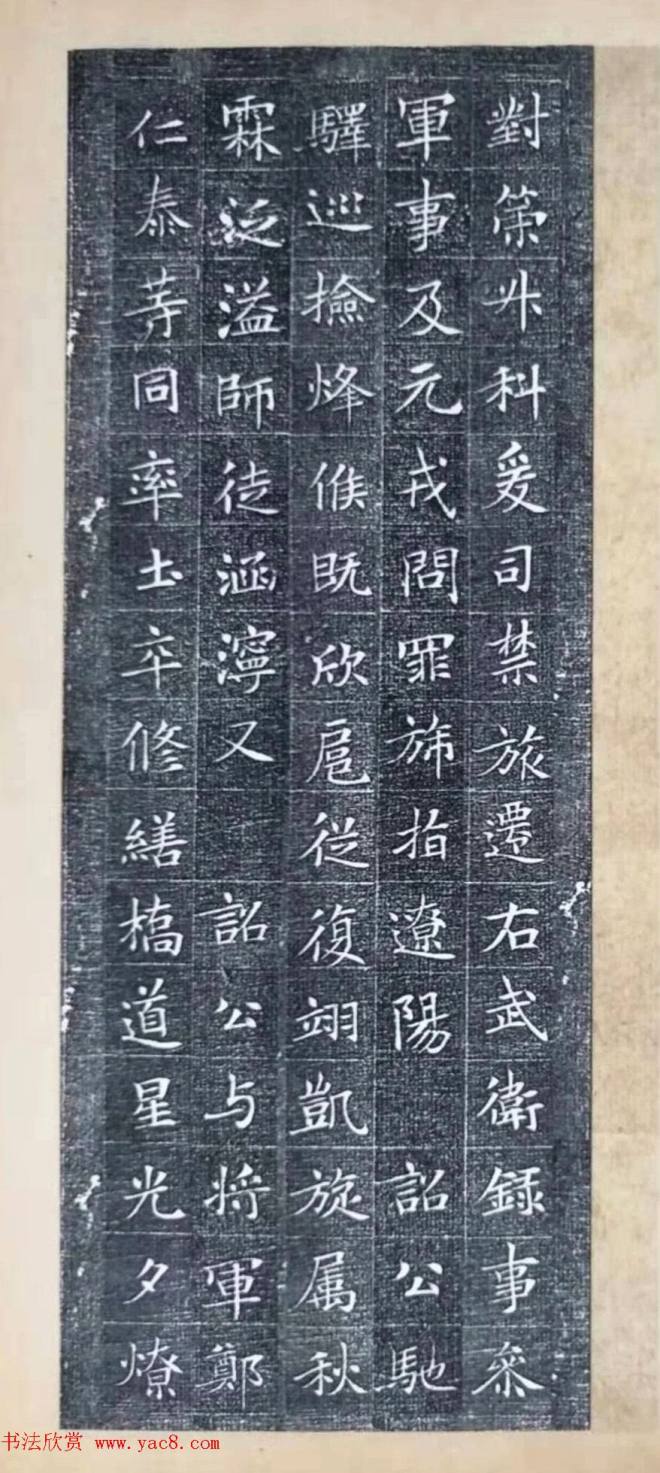 對策升科爰司禁旅遷右武衛錄事叅
軍事及元戎問罪旆指遼陽 詔公馳
驛巡撿烽候既欣扈從復翊凱旋属秋
霖泛溢師徒涵濘又 詔公与將軍鄭
仁泰等同率士卒修繕橋道星光夕燎
书法欣赏 www.yac8.com